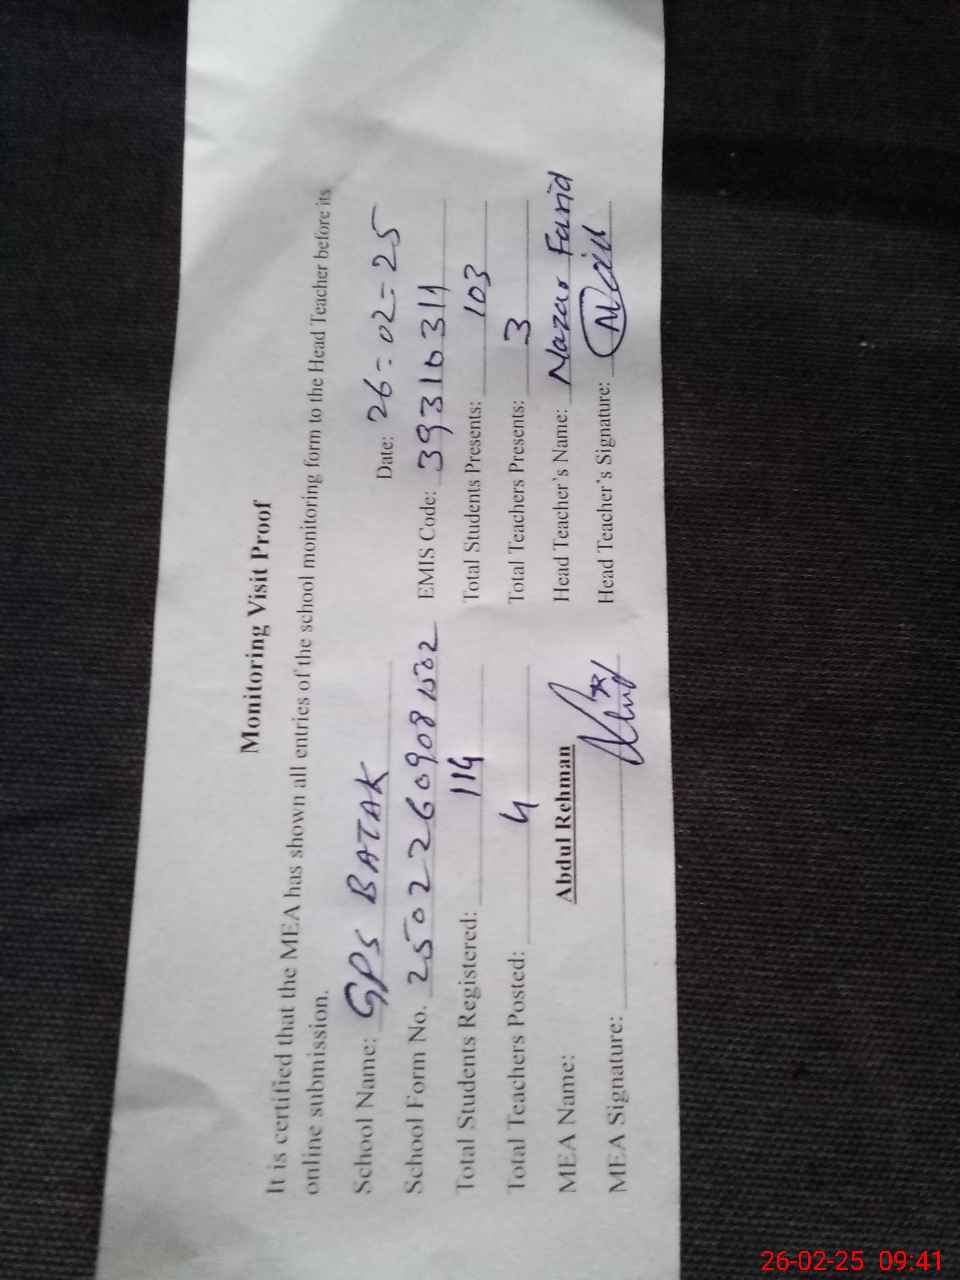 Monitoring Visit Proof
It is certified that the MEA has shown all entries of the school monitoring form to the Head Teacher before its
online submission.
Date: 26-02-25
School Name: GPS BATAK
School Form No. 25022609081502 EMIS Code: 39310311
Total Students Registered: 114 Total Students Presents: 103
Total Teachers Posted: 4 Total Teachers Presents: 3
MEA Name: Abdul Rehman Head Teacher's Name: Nazar Farid
MEA Signature: Head Teacher's Signature:
26-02-25 09:41